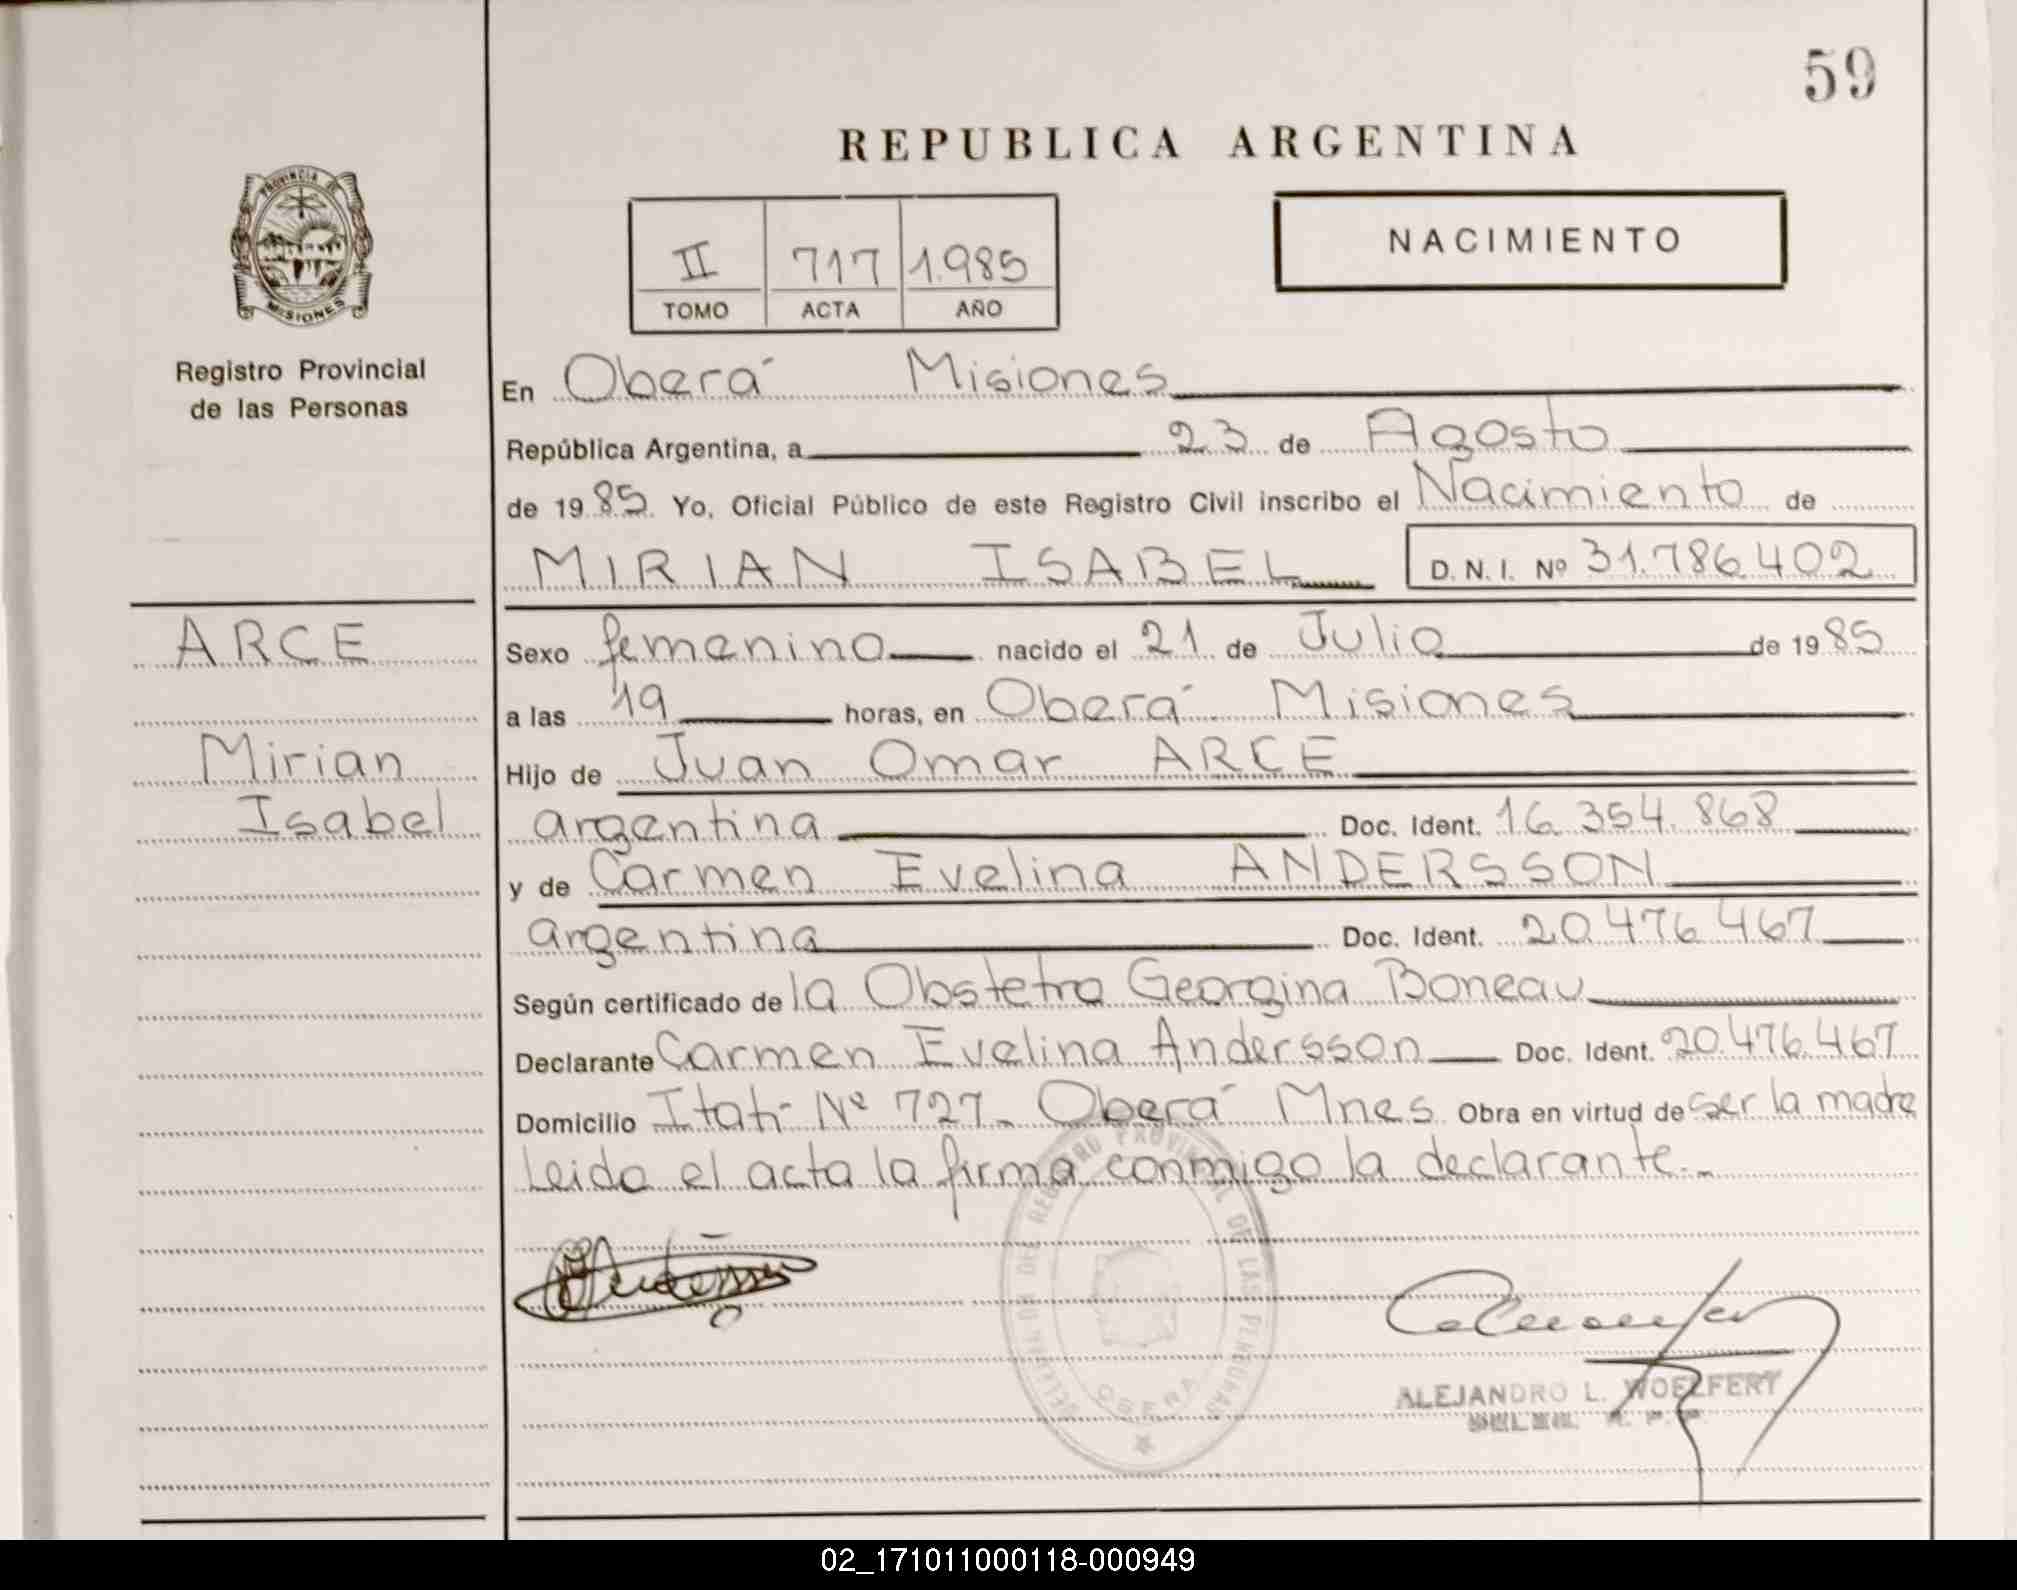 59
REPUBLICA ARGENTINA
PROVINCIA DE
MISIONES
II 717 1.985
TOMO ACTA AÑO
NACIMIENTO
Registro Provincial
de las Personas
En Oberá Misiones
República Argentina, a 23 de Agosto
de 1985 Yo, Oficial Público de este Registro Civil inscribo el Nacimiento de
MIRIAN ISABEL D. N. I. Nº 31.786.402
ARCE
Mirian
Isabel
Sexo femenino nacido el 21 de Julio de 1985
a las 19 horas, en Oberá Misiones
Hijo de Juan Omar ARCE
argentina Doc. Ident. 16.354.868
y de Carmen Evelina ANDERSSON
argentina Doc. Ident. 20.476.467
Según certificado de la Obstetra Georgina Boneau
Declarante Carmen Evelina Andersson Doc. Ident. 20.476.467
Domicilio Itatí Nº 727_ Oberá Mnes Obra en virtud de ser la madre
Leida el acta la firma conmigo la declarante._
REGISTRO PROVINCIAL DE LAS PERSONAS
OBERA
ALEJANDRO L. WOELFERT
02_171011000118-000949